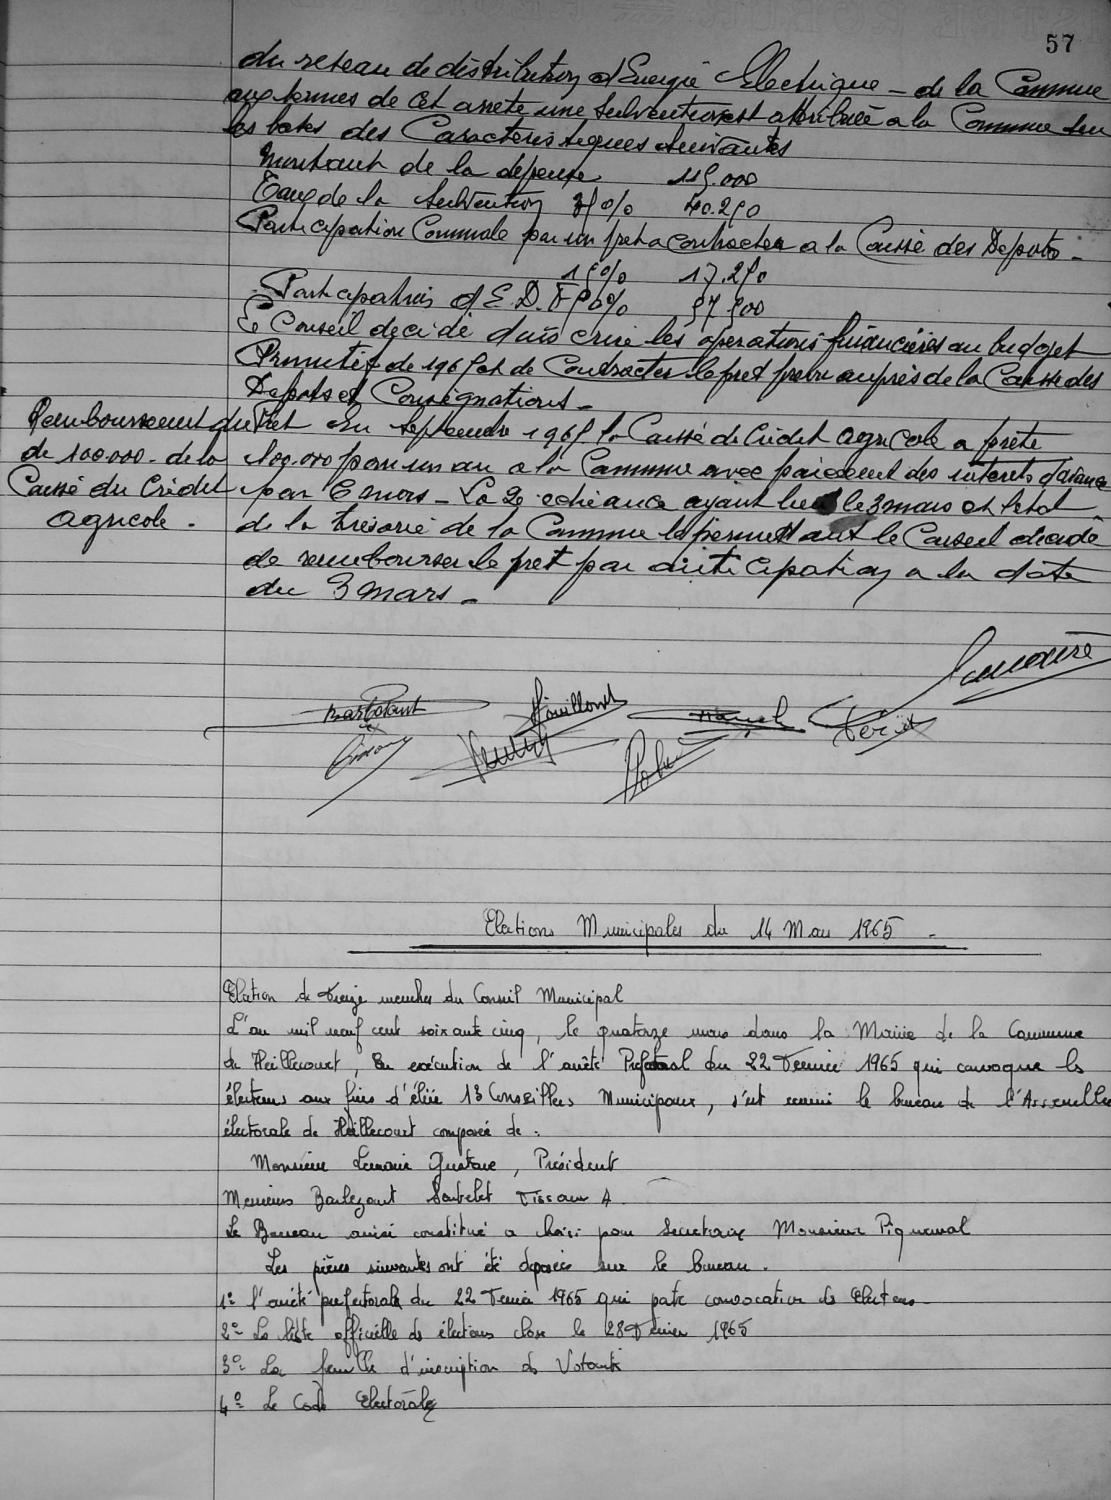 57
du reseau de distribution d'Energie Electrique - de la Commune
aux termes de cet arrete une subvention est attribuée a la Commune sur
les bases des Caracteristiques suivantes
Montant de la depense 115.000
Taux de la subvention 35% 40.250
Participation Communale par un pret a contracter a la Caisse des Depots -
15% 17.250
Participation d'E.D.F 50% 57 500
Le Conseil decide d'inscrire les operations financières au budget
Primitif de 1965 et de Contracter le pret prevu auprès de la Caisse des
Depots et Consignations -
Remboursement du Pret
de 100.000 - de la
Caisse du Crédit
agricole -
En septembre 1965 la Caisse de Crédit agricole a prete
100.000 pour un an a la Commune avec paiement des interets d'avance
par 6 mois - La 2e echeance ayant lieu le 3 mars et l'etat
de la tresorie de la Commune le permettant le Conseil decide
de rembourser le pret par anticipation a la date
du 3 mars -
Lemaire
Barbezant
Houillons
Elections Municipales du 14 Mars 1965 -
Election de treize membres du Conseil Municipal
L'an mil neuf cent soixante cinq, le quatorze mars dans la Mairie de la Commune
de Heillecourt, En exécution de l'arrêté Prefectoral du 22 Fevrier 1965 qui convoque les
électeurs aux fins d'élire 13 Conseillers Municipaux, s'est reuni le bureau de l'Assemblee
électorale de Heillecourt composée de :
Monsieur Lemaire Gustave, Président
Messieurs Barbezant Tissour A.
Le Bureau ainsi constitué a choisi pour Secretaire Monsieur Piquerval
Les pièces suivantes ont été deposées sur le bureau.
1º l'arrêté prefectorale du 22 Fevrier 1965 qui porte convocation des Electeurs -
2º La liste officielle des élections close le 28 Fevrier 1965
3º La feuille d'inscription des Votants
4º Le Code Electorale